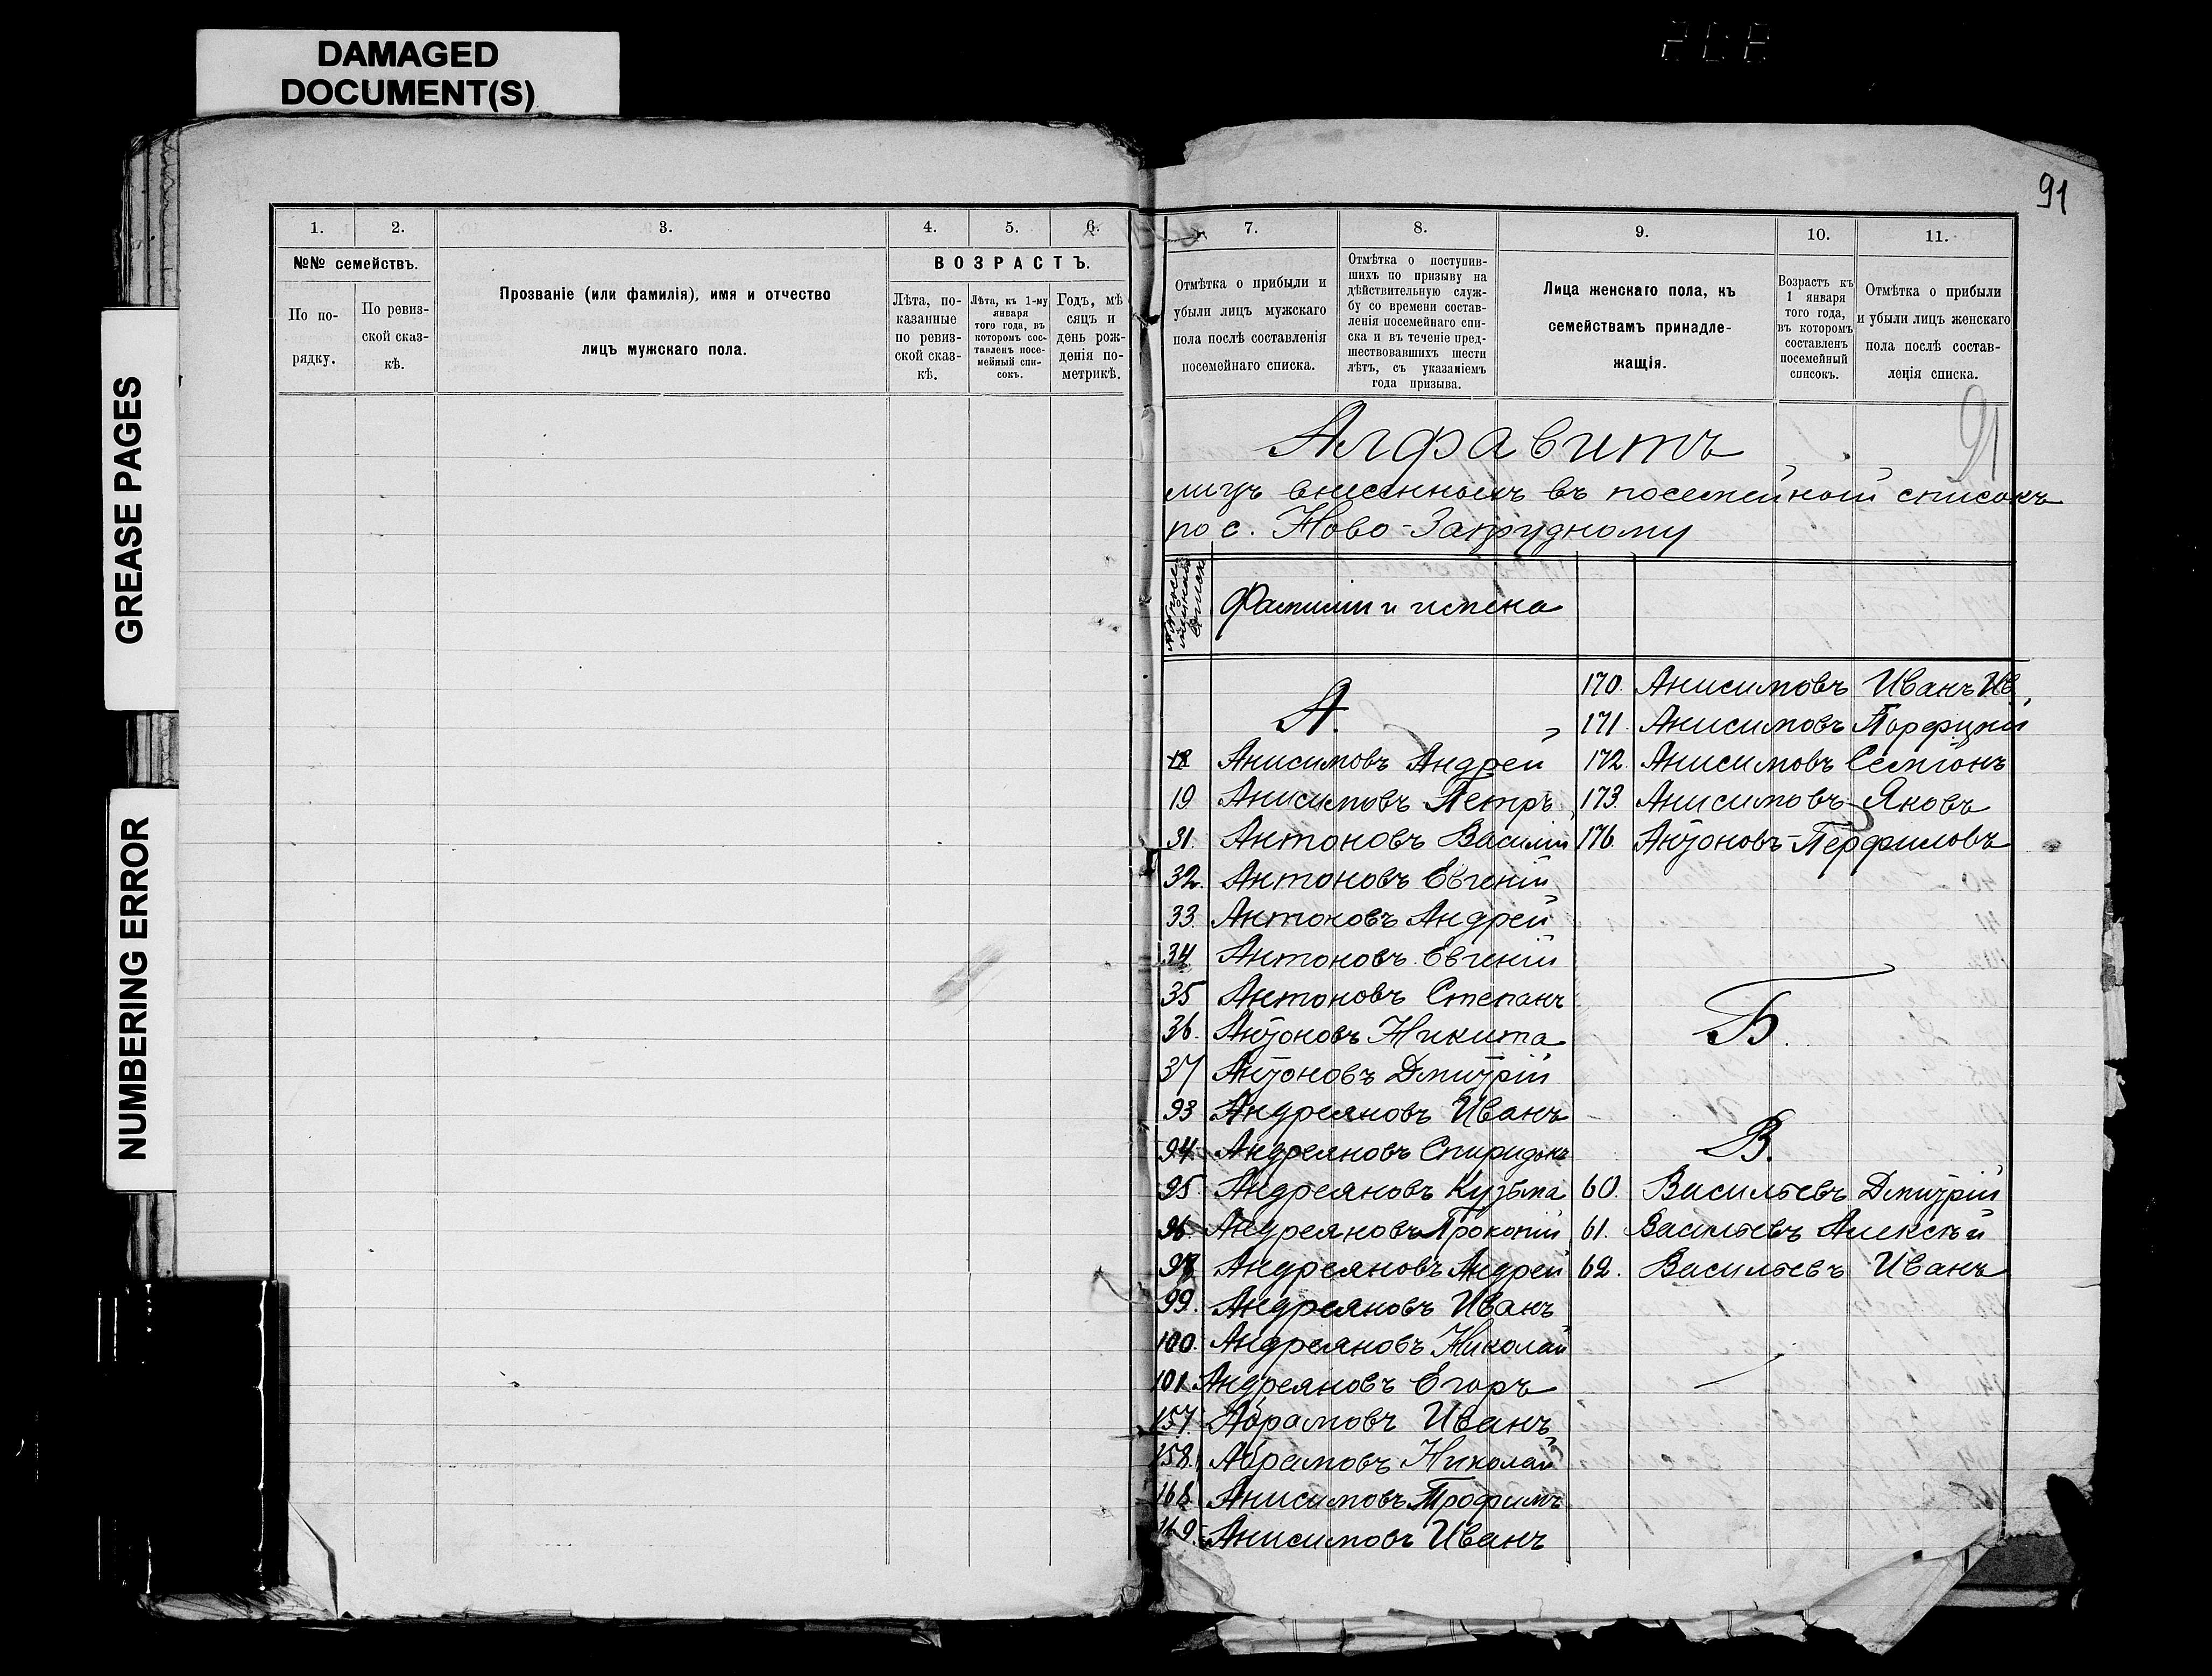 DAMAGED
DOCUMENT(S)
GREASE PAGES
NUMBERING ERROR
1. 2. 3. 4. 5. 6.
№№ семействъ.
По по-
рядку.
По ревиз-
ской сказ-
кѣ.
Прозваніе (или фамилія), имя и отчество
лицъ мужскаго пола.
ВОЗРАСТЪ.
Лѣта, по-
казанные
по ревиз-
ской сказ-
кѣ.
Лѣта, къ 1-му
января
того года, въ
которомъ сос-
тавленъ посе-
мейный спи-
сокъ.
Годъ, мѣ
сяцъ и
день рож-
денія по-
метрикѣ.
91
7. 8. 9. 10. 11.
Отмѣтка о прибыли и
убыли лицъ мужскаго
пола послѣ составленія
посемейнаго списка.
Отмѣтка о поступив-
шихъ по призыву на
дѣйствительную служ-
бу со времени состав-
ленія посемейнаго спи-
ска и въ теченіе пред-
шествовавшихъ шести
лѣтъ, съ указаніемъ
года призыва.
Лица женскаго пола, къ
семействамъ принадле-
жащія.
Возрастъ къ
1 января
того года,
въ которомъ
составленъ
посемейный
списокъ.
Отмѣтка о прибыли
и убыли лицъ женскаго
пола послѣ состав-
ленія списка.
91
Алфавитъ
лицъ внесенныхъ въ посемейный списокъ
по с. Ново-Запрудному
Фамиліи и имена
А.
18 Анисимовъ Андрей
19 Анисимовъ Петръ
31. Антоновъ Василій
32. Антоновъ Евгеній
33. Антоновъ Андрей
34 Антоновъ Евгеній
35 Антоновъ Степанъ
36. Антоновъ Никита
37 Антоновъ Дмитрій
93 Андреяновъ Иванъ
94. Андреяновъ Спиридонъ
95 Андреяновъ Кузьма
96. Андреяновъ Прокопій
98 Андреяновъ Андрей
99. Андреяновъ Иванъ
100. Андреяновъ Николай
101. Андреяновъ Егоръ
157. Абрамовъ Иванъ
158. Абрамовъ Николай
168. Анисимовъ Трофимъ
169. Анисимовъ Иванъ
170. Анисимовъ Иванъ Ив.
171. Анисимовъ Порфирій
172. Анисимовъ Семіонъ
173. Анисимовъ Яковъ
176. Антоновъ-Перфиловъ
Б.
В.
60. Васильевъ Дмитрій
61. Васильевъ Алексѣй
62. Васильевъ Иванъ